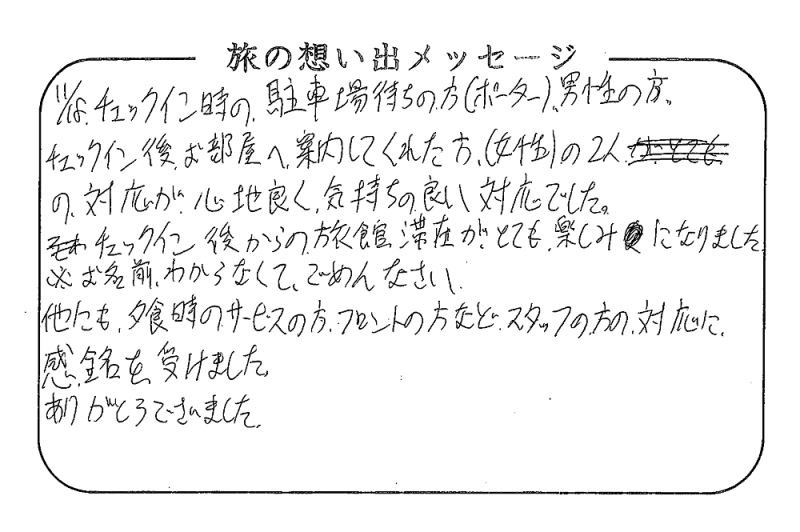 旅の想い出メッセージ
チェックイン時の、駐車場待ちの方(ポーター)、男性の方、
チェックイン後、お部屋へ、案内してくれた方、(女性)の2人
の、対応が、心地良く、気持ちの良い対応でした。
チェックイン後からの、旅館、滞在が、とても、楽しみになりました
※お名前、わからなくて、ごめんなさい。
他にも、夕食時のサービスの方、フロントの方など、スタッフの方の、対応に、
感銘を、受けました。
ありがとうございました。